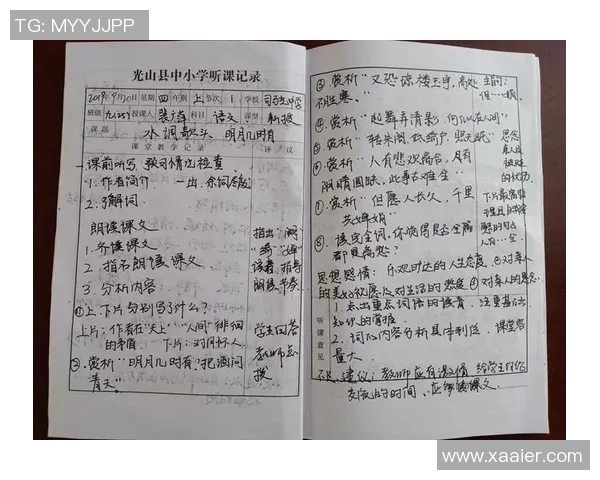 TG: MYYJJPP
光山县中小学听课记录
2019年9月20日 星期 四 年别 上 节次 1 学校 司马光中学
班级 九(25) 授课人 科目 语文 课型 新授
课题 水调歌头·明月几时有
课堂教学记录 评议
一、课前听写、预习情况检查
1. 作者简介
2. 了解词
朗读课文
1. 齐读课文
2. 指名朗读课文
3. 分析内容
①上、下片分别写了什么?
上片:作者在"天上""人间"徘徊
的矛盾。 下片:对月怀人
②. 赏析"明月几时有,把酒问
青天"。
指出:
读音,指导
朗读节奏
学生回答
教师点
拨
③. 赏析"又恐琼楼玉宇,高处
不胜寒。"
④. 赏析"起舞弄清影,何似在人间"
⑤. 赏析"转朱阁,低绮户,照无眠"
⑥ 赏析"人有悲欢离合,月有
阴晴圆缺,此事古难全"
⑦. 赏析"但愿人长久,千里
共婵娟"
⑧. 读完全词,你觉得是否全篇
都是离愁?
思想感情: 乐观旷达的人生态度 ②对亲人
的美好祝愿 ③对生活的热爱 ④对亲人的思念
听课意见
1. 点出重点词语的读音 注重基础
知识的掌握
2. 词心内容分析具体到位 课堂容
量大
建议:教师应有激情 给学生时间
交流的时间、应 课文
www.xaaier.com